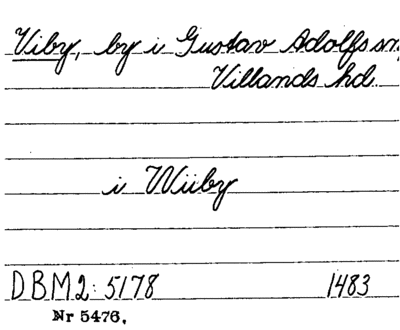 Viby, by i Gustav Adolfs sn,
Villands hd.
i Wiiby
DBM2: 5178 1483
Nr 5476.